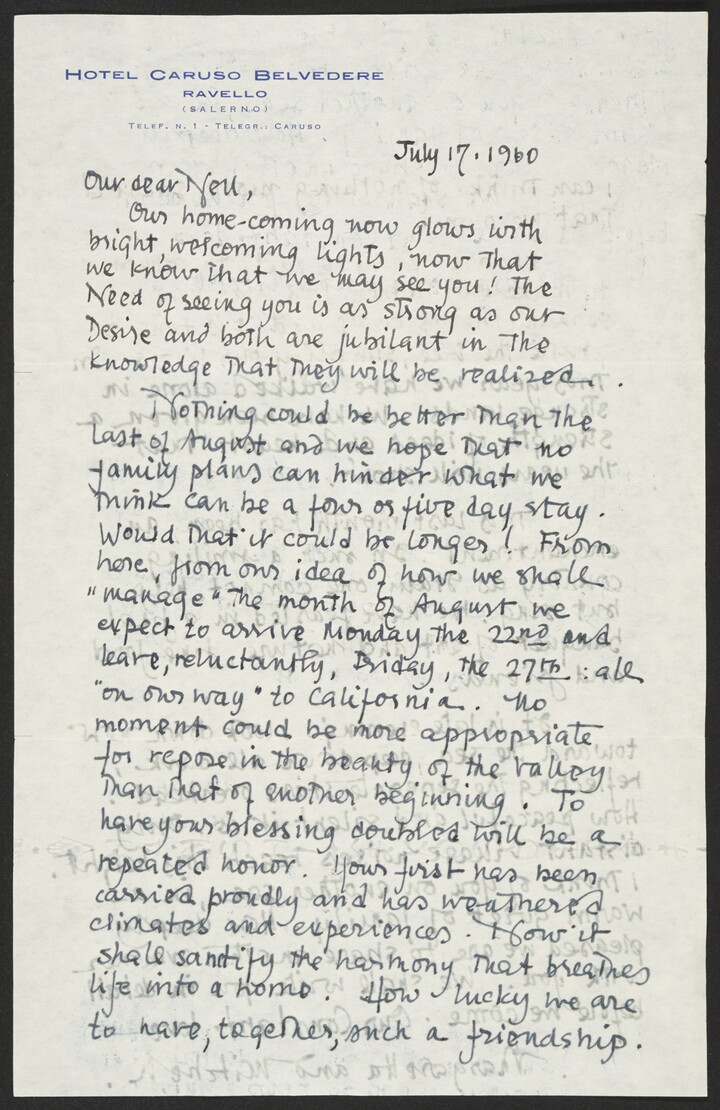 HOTEL CARUSO BELVEDERE
RAVELLO
(SALERNO)
TELEF. N. 1 - TELEGR.: CARUSO
July 17. 1960
Our dear Nell,
Our home-coming now glows with
bright, welcoming lights, now that
we know that we may see you! The
Need of seeing you is as strong as our
Desire and both are jubilant in the
knowledge that they will be realized. .
Nothing could be better than the
last of August and we hope that no
family plans can hinder what we
think can be a four or five day stay.
Would that it could be longer! From
here, from our idea of how we shall
"manage" the month of August we
expect to arrive Monday the 22nd and
leave, reluctantly, Friday, the 27th: all
"on our way" to California. No
moment could be more appropriate
for repose in the beauty of the valley
than that of another beginning. To
have your blessing doubled will be a
repeated honor. Your first has been
carried proudly and has weathered
climates and experiences. Now it
shall santify the harmony that breathes
life into a home. How lucky we are
to have, together, such a friendship.